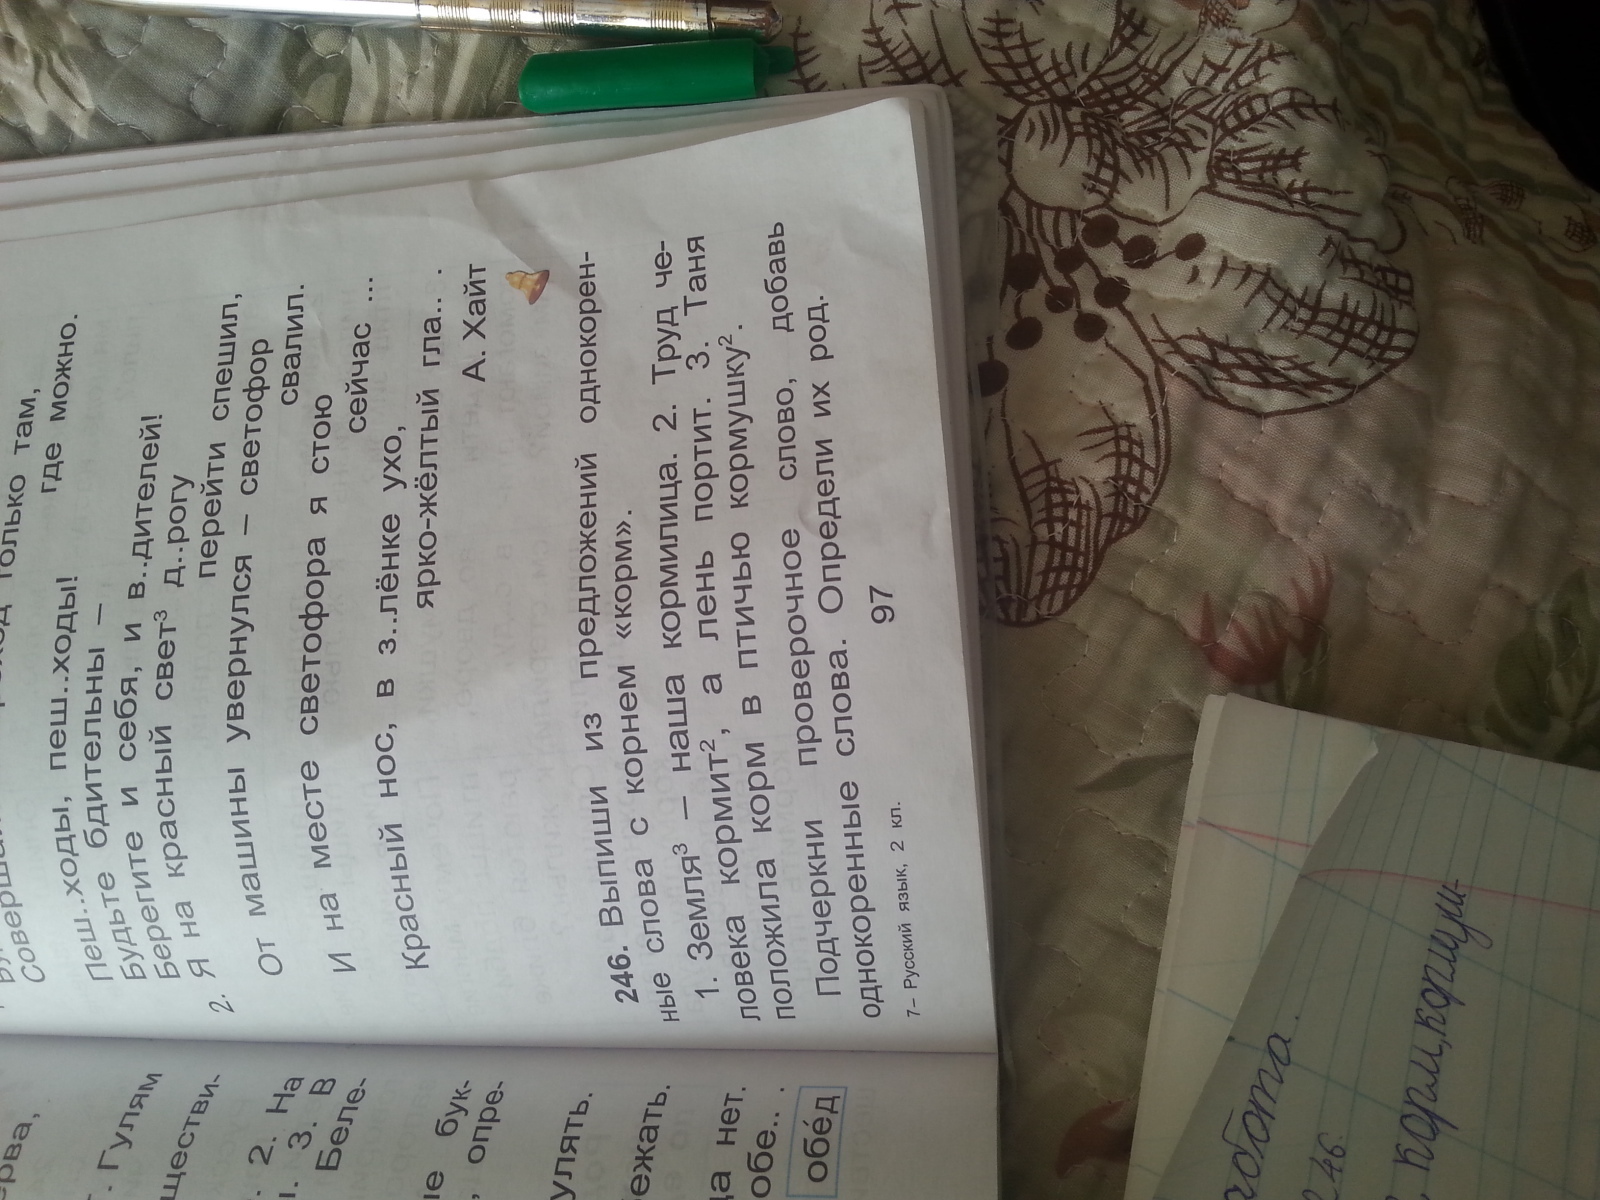 только там,
Совершай
где можно.
Пеш..ходы, пеш..ходы!
Будьте бдительны –
Берегите и себя, и в..дителей!
2. Я на красный свет³ д..рогу
перейти спешил,
От машины увернулся – светофор
свалил.
И на месте светофора я стою
сейчас ...
Красный нос, в з..лёнке ухо,
ярко-жёлтый гла.. .
А. Хайт
246. Выпиши из предложений однокорен-
ные слова с корнем «корм».
1. Земля³ – наша кормилица. 2. Труд че-
ловека кормит², а лень портит. 3. Таня
положила корм в птичью кормушку².
Подчеркни проверочное слово, добавь
однокоренные слова. Определи их род.
7– Русский язык, 2 кл.
97
. Гулям
ществи-
. 2. На
. 3. В
Беле-
бук-
, опре-
улять.
ежать.
да нет.
обе.. .
обéд
работа.
246.
, корм, кормуш-